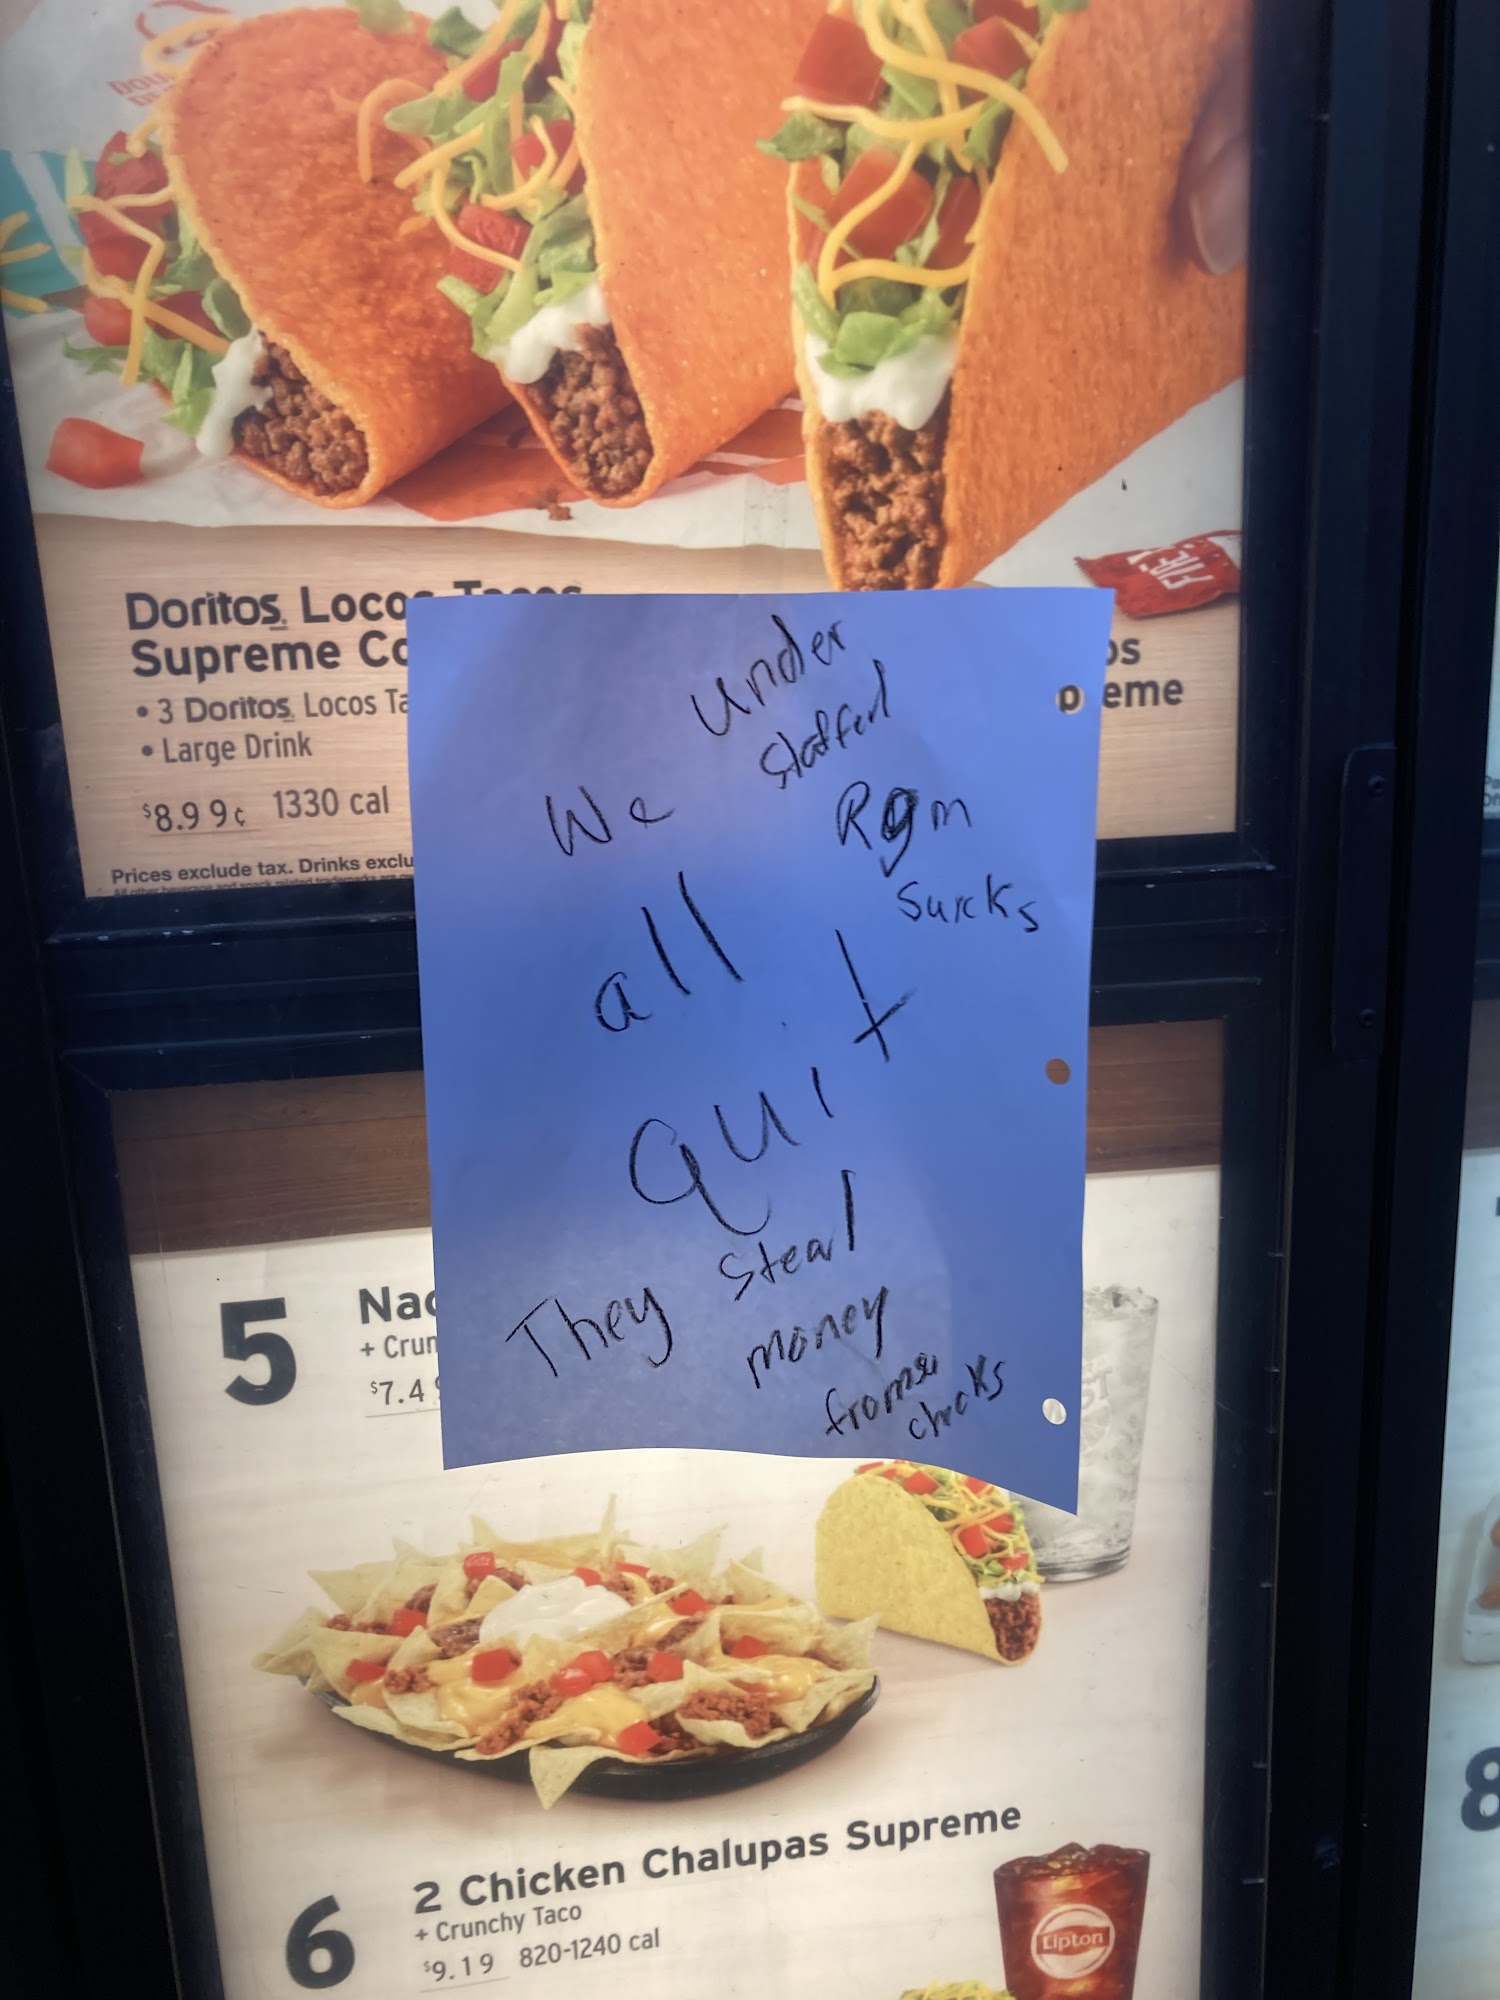 Doritos Locos Tacos
Supreme Co
• 3 Doritos Locos Ta
• Large Drink
$8.99¢ 1330 cal
Prices exclude tax. Drinks exclu
os
preme
FIRE
We
all
quit
under
staffed
Rgm
sucks
They steal
money
from
checks
5
Nac
+ Crun
$7.4
6
2 Chicken Chalupas Supreme
+ Crunchy Taco
$9.19 820-1240 cal
Lipton
8